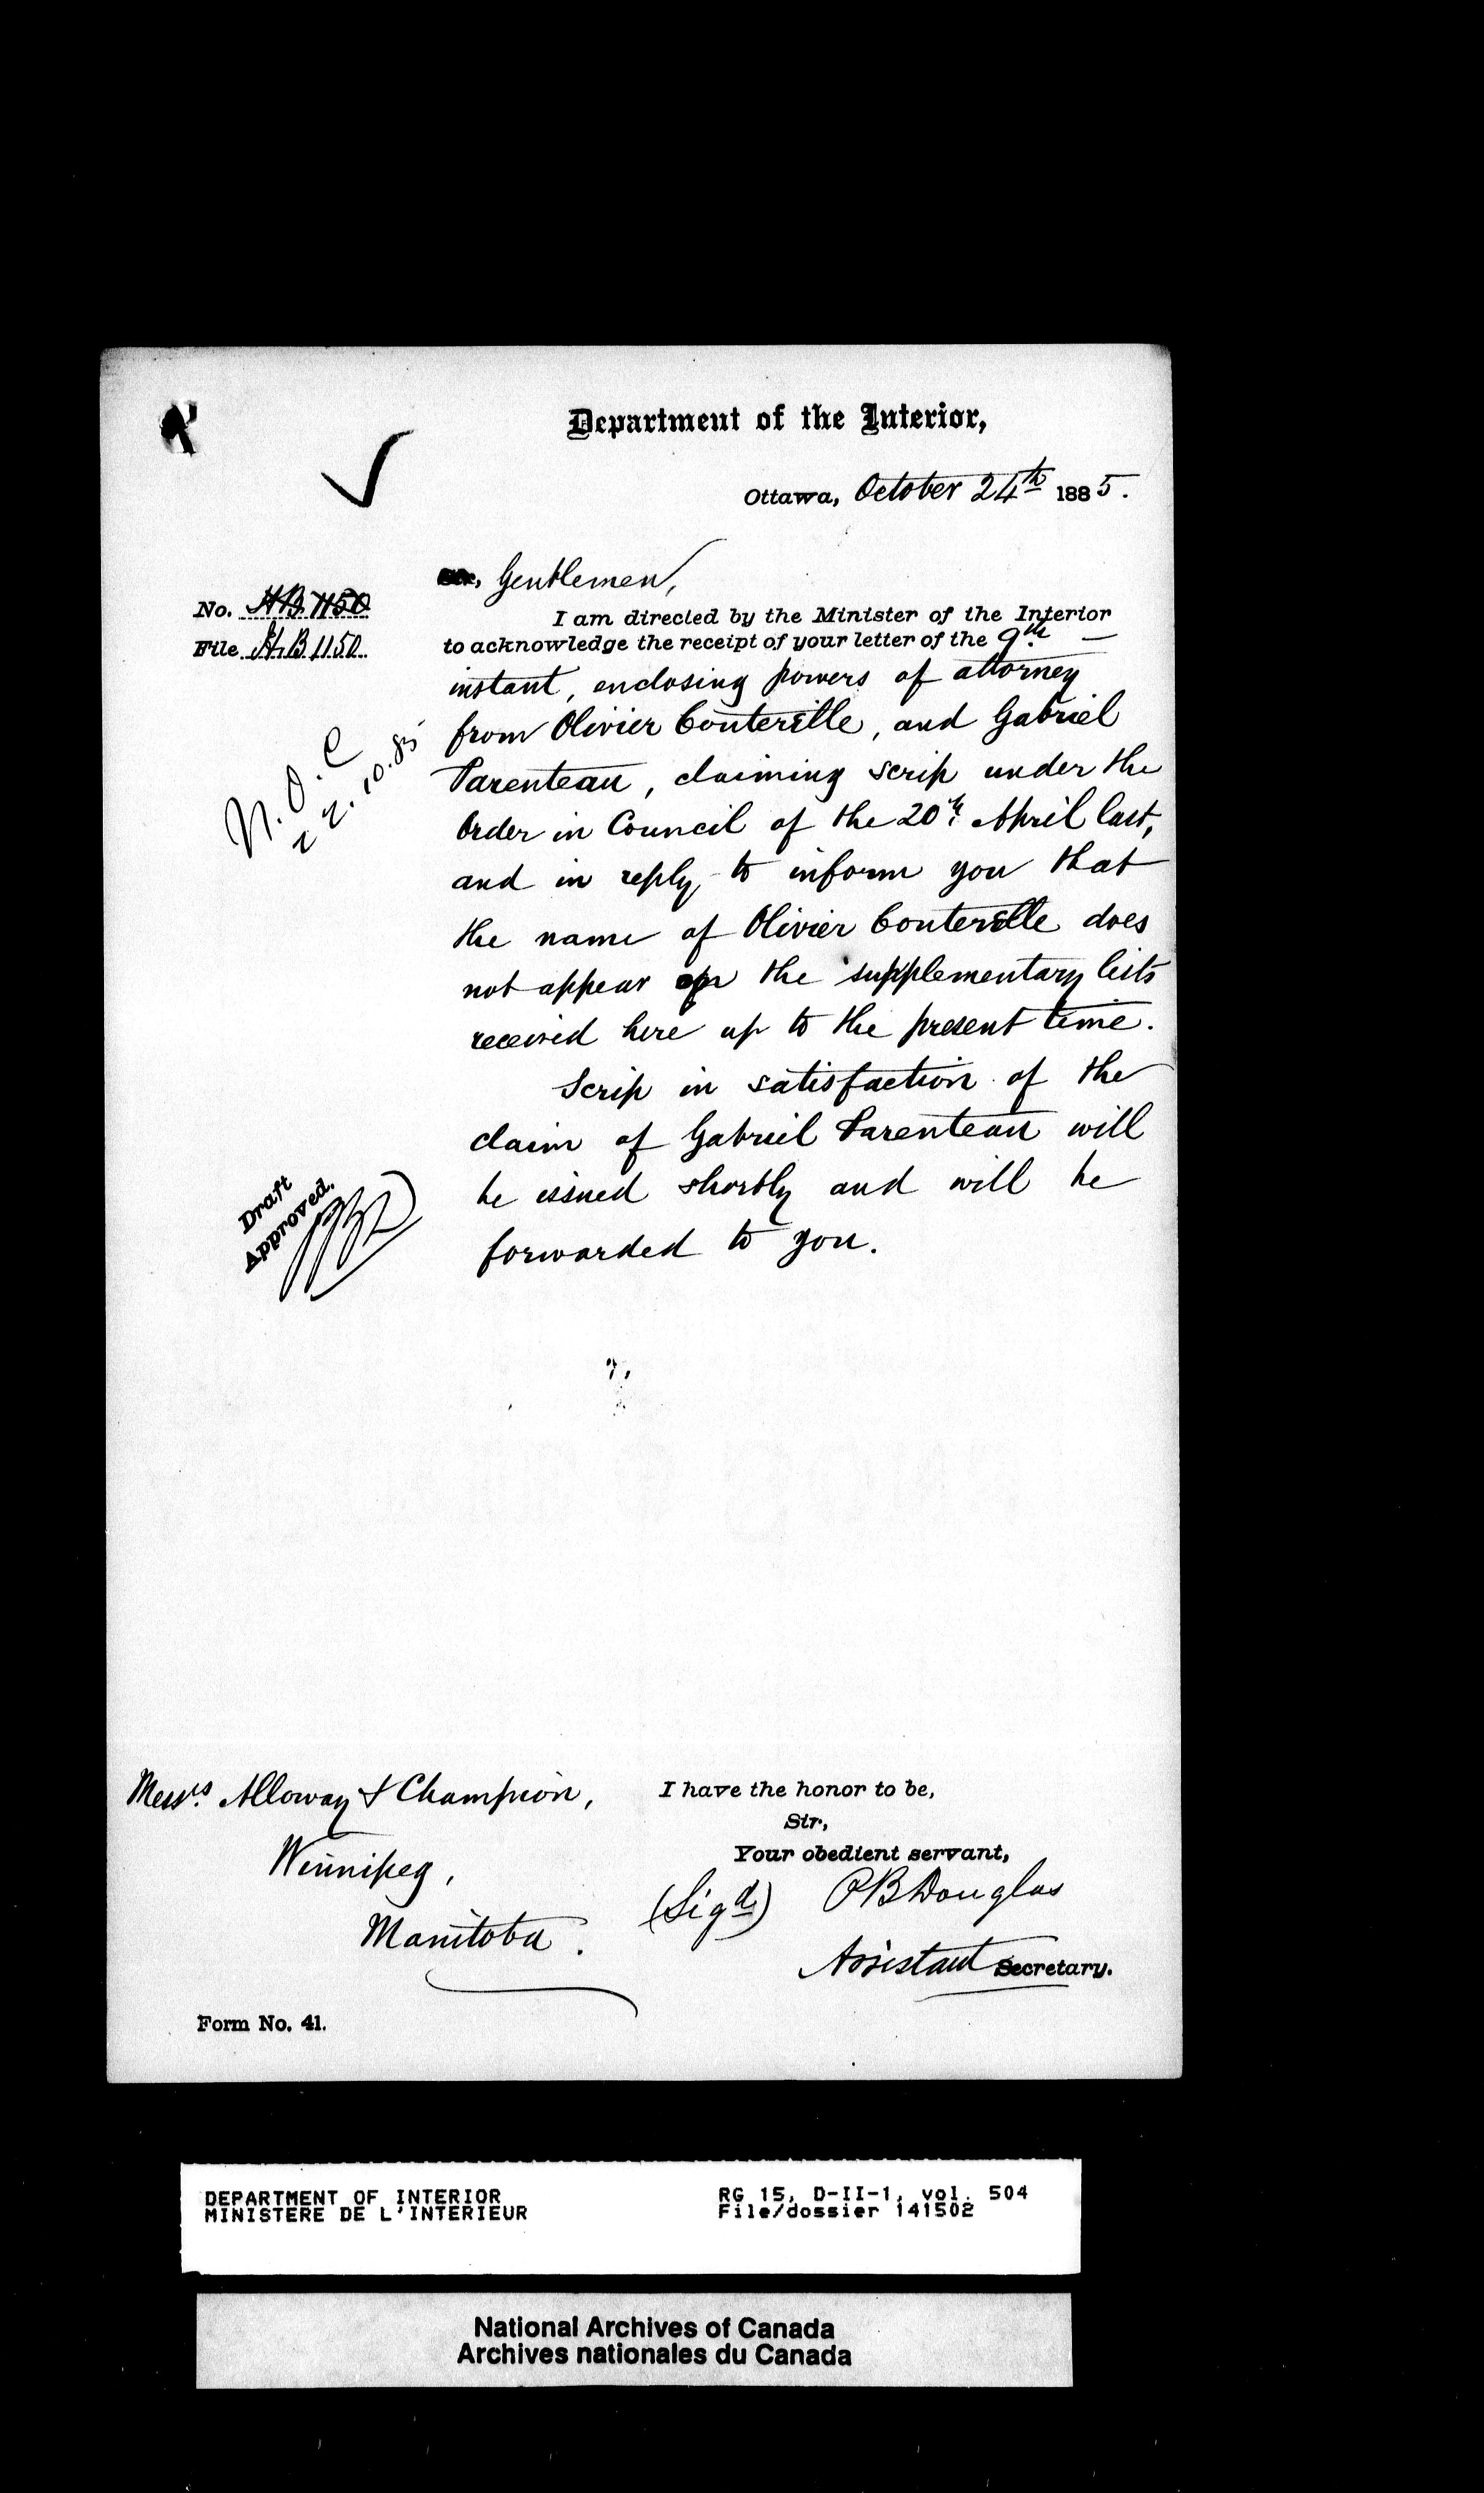 Department of the Interior,
Ottawa, October 24th 1885.
Gentlemen,
No. HB 1150
File HB 1150
I am directed by the Minister of the Interior
to acknowledge the receipt of your letter of the 9th
instant, enclosing powers of attorney
from Olivier Couterille, and Gabriel
Parenteau, claiming scrip under the
Order in Council of the 20th April last,
and in reply, to inform you that
the name of Olivier Couterille does
not appear on the supplementary lists
received here up to the present time.
Scrip in satisfaction of the
claim of Gabriel Parenteau will
be issued shortly and will be
forwarded to you.
N.O.C
22.10.85
Draft
Approved.
Messrs. Alloway & Champion,
Winnipeg,
Manitoba.
I have the honor to be,
Sir,
Your obedient servant,
(Sigd) P B Douglas
Assistant Secretary.
Form No. 41.
DEPARTMENT OF INTERIOR
MINISTERE DE L'INTERIEUR
RG 15, D-II-1, vol. 504
File/dossier 141502
National Archives of Canada
Archives nationales du Canada